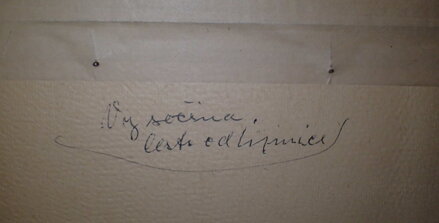 Vysočina.
Cesta od Lipnice